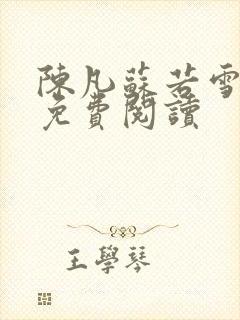 陳凡蘇若雪
免費閱讀
王學琴